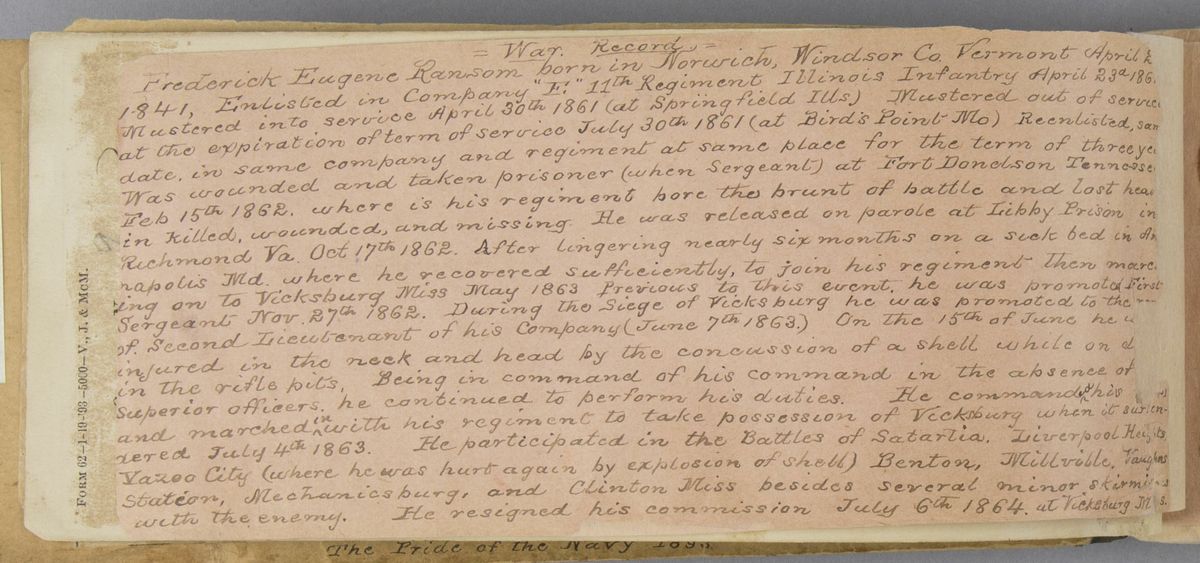 = War. Record. =
Frederick Eugene Ransom born in Norwich, Windsor Co. Vermont April 2
1841, Enlisted in Company "E." 11th Regiment Illinois Infantry April 23d 186
Mustered into service April 30th 1861 (at Springfield Ills.) Mustered out of service
at the expiration of term of service July 30th 1861 (at Bird's Point Mo) Reenlisted, sam
date, in same company and regiment at same place for the term of three yea
Was wounded and taken prisoner (when Sergeant) at Fort Donelson Tennesse
Feb 15th 1862. where is his regiment bore the brunt of battle and lost hea
in killed, wounded, and missing. He was released on parole at Libby Prison in
Richmond Va. Oct 17th 1862. After lingering nearly six months on a sick bed in An
napolis Md. where he recovered sufficiently, to join his regiment then march
ing on to Vicksburg Miss May 1863 Previous to this event, he was promoted First
Sergeant Nov. 27th 1862. During the Siege of Vicksburg he was promoted to the
of Second Lieutenant of his Company (June 7th 1863.) On the 15th of June he w
injured in the neck and head by the concussion of a shell while on d
in the rifle pits. Being in command of his command in the absence of
superior officers, he continued to perform his duties. He commanded his
and marched in with his regiment to take possession of Vicksburg when it surren-
dered July 4th 1863. He participated in the Battles of Satartia, Liverpool Heights
Yazoo City (where he was hurt again by explosion of shell) Benton, Millville, Vaughns
Station, Mechanicsburg, and Clinton Miss besides several minor skirmishes
with the enemy. He resigned his commission July 6th 1864. at Vicksburg Miss.
FORM 62—1-19-93-5000—V., J. & McM.
The Pride of the Navy 1893